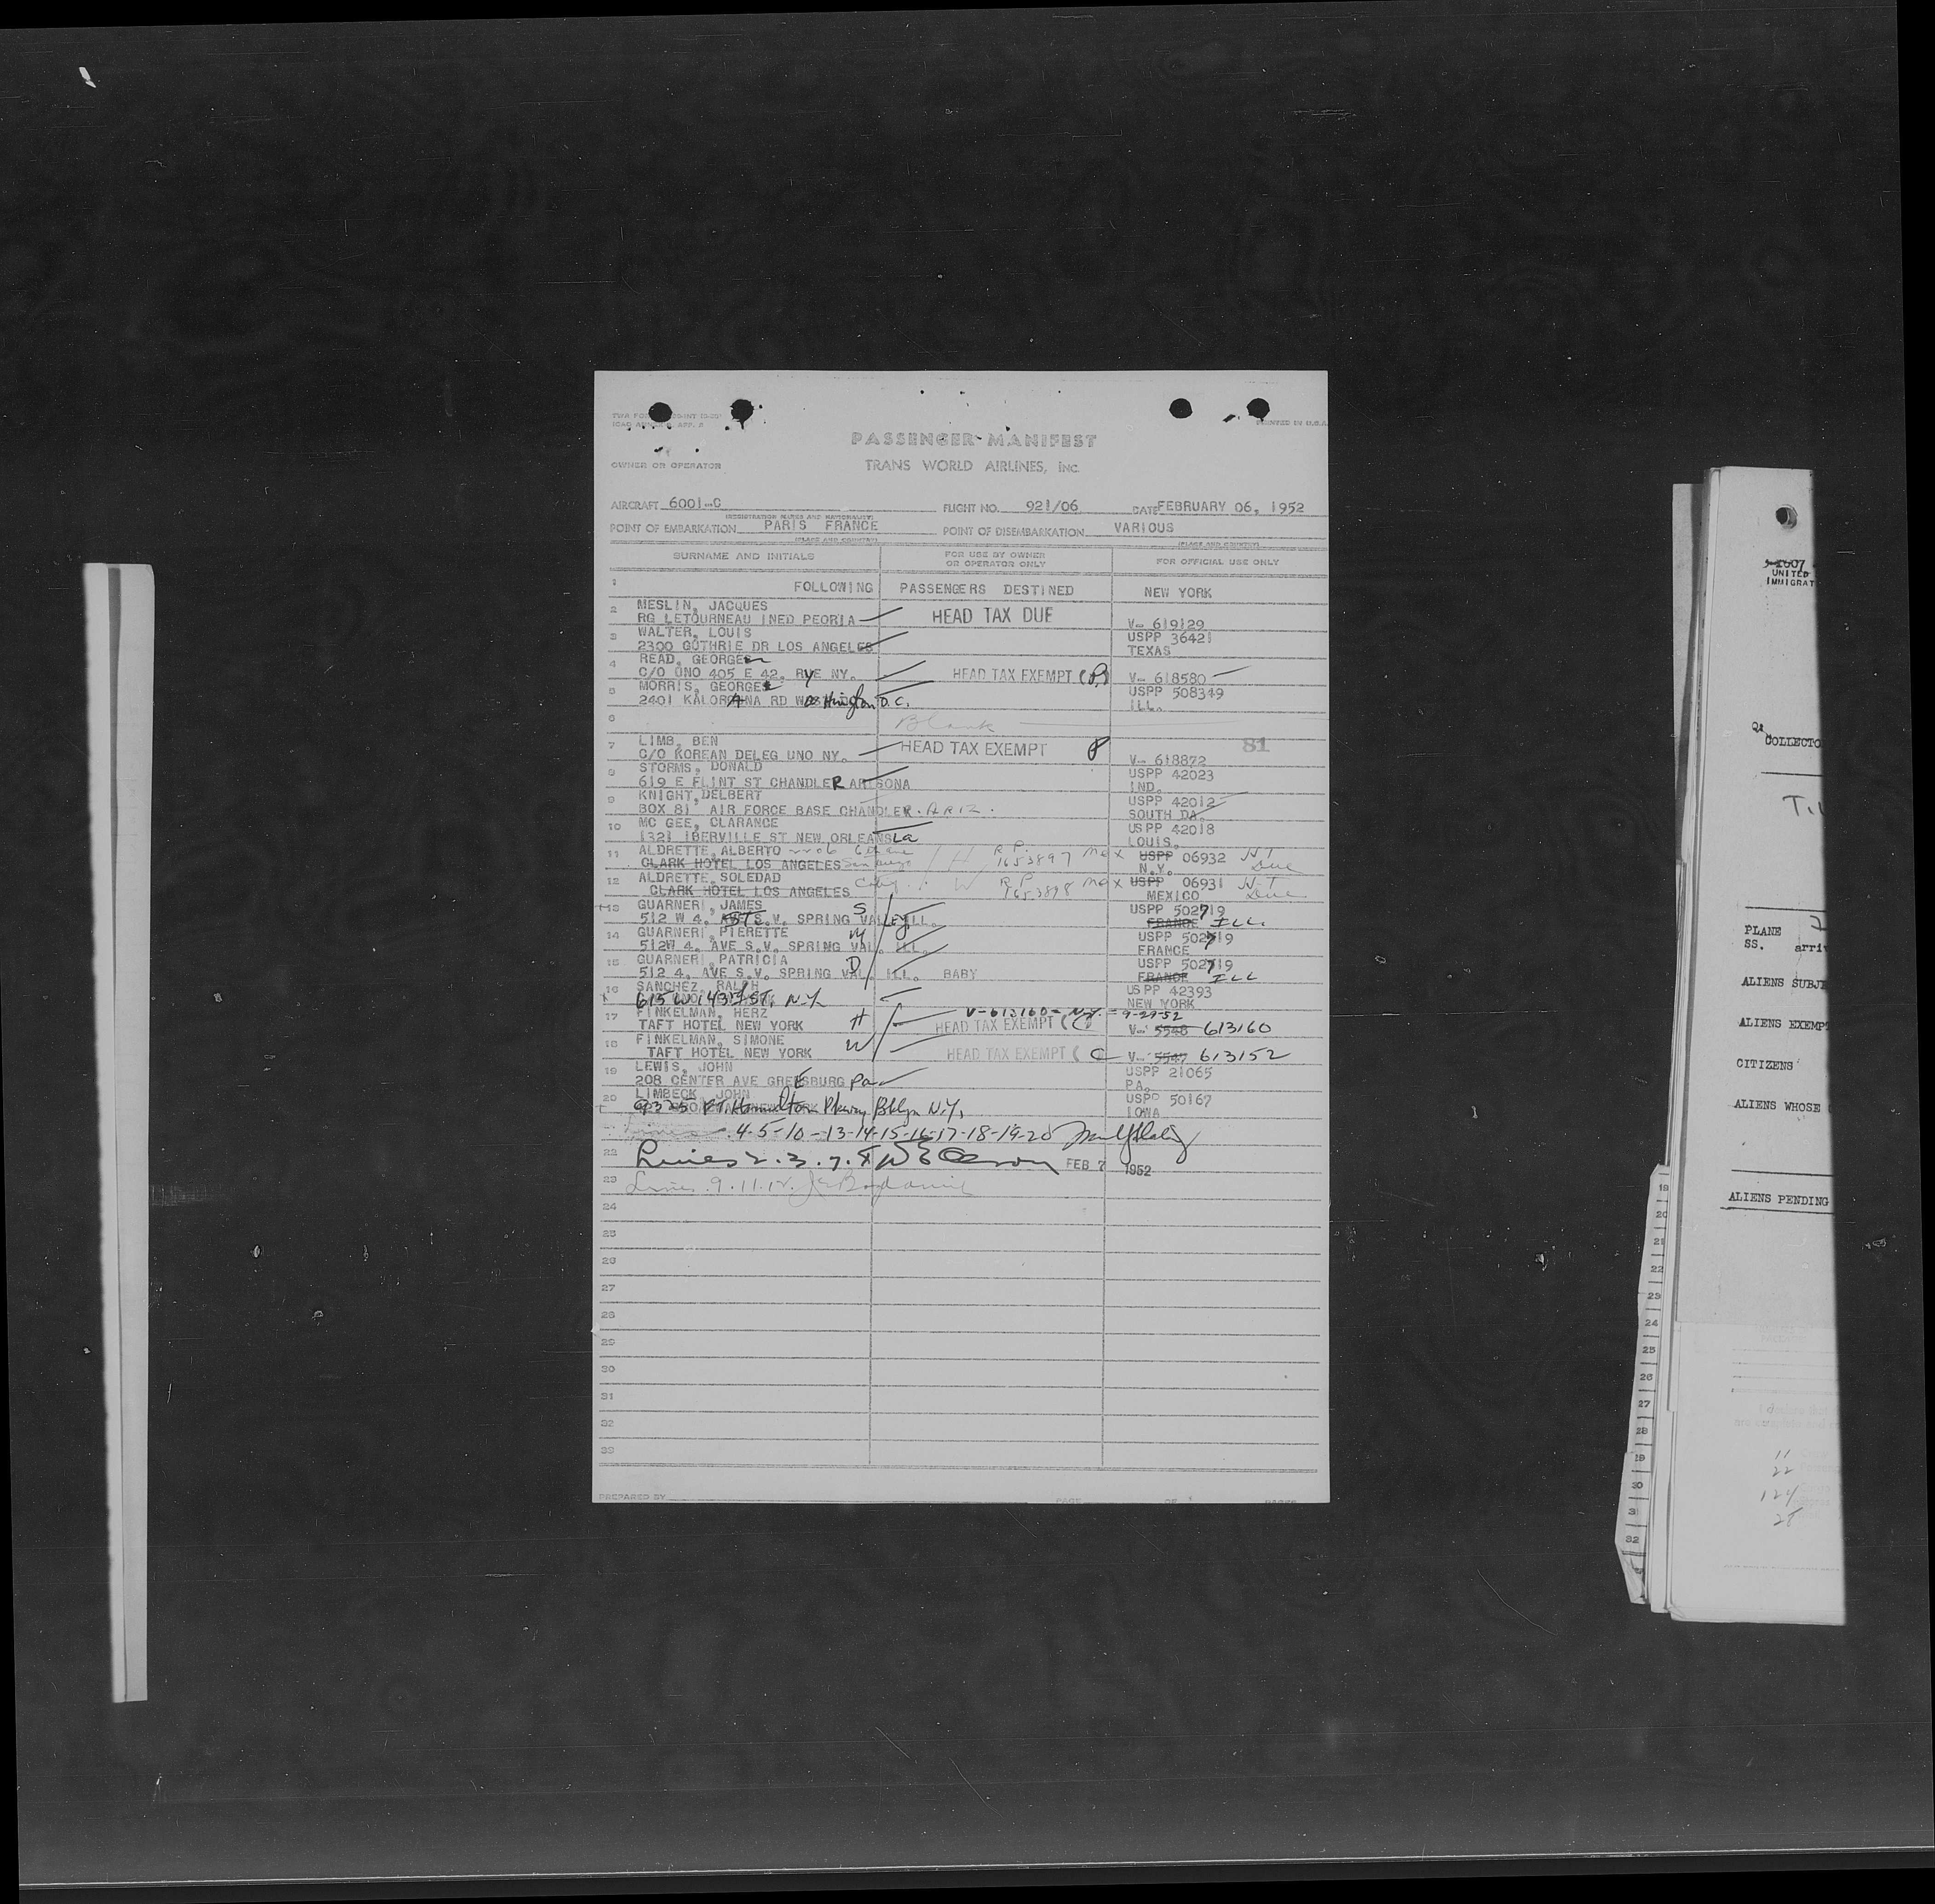 PRINTED IN U.S.A.
PASSENGER MANIFEST
OWNER OR OPERATOR TRANS WORLD AIRLINES, INC.
AIRCRAFT 6001-C FLIGHT NO. 921/06 DATE FEBRUARY 06, 1952
(REGISTRATION MARKS AND NATIONALITY)
POINT OF EMBARKATION PARIS FRANCE POINT OF DISEMBARKATION VARIOUS
(PLACE AND COUNTRY) (PLACE AND COUNTRY)
SURNAME AND INITIALS FOR USE BY OWNER OR OPERATOR ONLY FOR OFFICIAL USE ONLY
1 FOLLOWING PASSENGERS DESTINED NEW YORK
2 MESLIN, JACQUES
RG LETOURNEAU INED PEORIA HEAD TAX DUE V- 619129
3 WALTER, LOUIS USPP 36421
2300 GUTHRIE DR LOS ANGELES TEXAS
4 READ, GEORGE
C/O UNO 405 E 42. RYE NY. HEAD TAX EXEMPT V- 618580
5 MORRIS, GEORGE USPP 508349
2401 KALORANA RD WASHington D.C. ILL.
6 Blank
81
7 LIMB, BEN
C/O KOREAN DELEG UNO NY. HEAD TAX EXEMPT V- 618872
8 STORMS, DONALD USPP 42023
619 E FLINT ST CHANDLER ARISONA IND.
9 KNIGHT, DELBERT USPP 42012
BOX 81 AIR FORCE BASE CHANDLER. ARIZ. SOUTH DA.
10 MC GEE, CLARANCE USPP 42018
1321 IBERVILLE ST NEW ORLEANS La LOUIS.
11 ALDRETTE, ALBERTO H R.P. 1653897 Mex USPP 06932 H.T.
CLARK HOTEL LOS ANGELES N.Y. Due
12 ALDRETTE, SOLEDAD W R.P. 1653898 Mex USPP 06931 H.T.
CLARK HOTEL LOS ANGELES MEXICO Due
13 GUARNERI, JAMES S USPP 502719
512 W 4. S.V. SPRING VALLEY ILL. FRANCE ILL.
14 GUARNERI, PIERETTE USPP 502719
512W 4. AVE S.V. SPRING VAL. ILL. FRANCE
15 GUARNERI, PATRICIA D USPP 502719
512 4. AVE S.V. SPRING VAL. ILL. BABY FRANCE ILL
16 SANCHEZ, RALPH USPP 42393
615 W 143 ST. N.Y. NEW YORK
17 FINKELMAN, HERZ V-613160- N.Y. - 9-27-52
TAFT HOTEL NEW YORK H HEAD TAX EXEMPT (C V- 5548 613160
18 FINKELMAN, SIMONE
TAFT HOTEL NEW YORK W HEAD TAX EXEMPT ( C V- 5547 613152
19 LEWIS, JOHN USPP 21065
208 CENTER AVE GREESBURG Pa PA.
20 LIMBECK, JOHN USPP 50167
9325 FT Hamilton Pkway Bklyn N.Y. IOWA
4-5-10-13-14-15-16-17-18-19-20
22 Lines 2.3.7.8 FEB 7 1952
23 Lines 9.11.12.
24
25
26
27
28
29
30
31
32
33
PREPARED BY PAGE OF PAGES
UNITED
IMMIGRAT
COLLECTO
PLANE
SS. arriv
ALIENS SUBJE
ALIENS EXEMPT
CITIZENS
ALIENS WHOSE
ALIENS PENDING
19
20
21
22
23
24
25
26
27
28
29
30
31
32
11
22
124
28